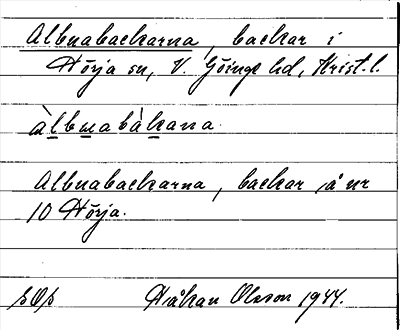 Albuabackarna, backar i
Hörja sn, V. Göinge hd, Krist. l.
àlbuabàkana.
Albuabackarna, backar å nr
10 Hörja.
Håkan Olsson 1944.